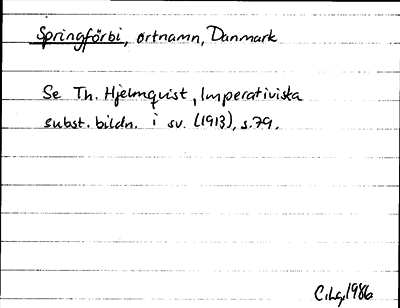 Springförbi, ortnamn, Danmark
Se Th. Hjelmqvist, Imperativiska
subst. bildn. i sv. (1913), s. 79.
C.Lg, 1986